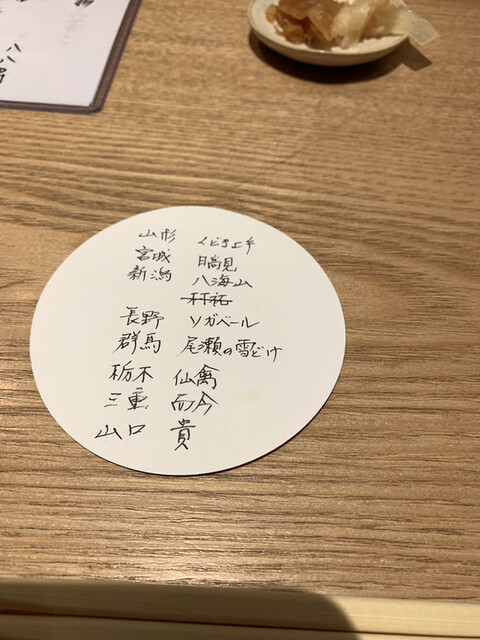 山形 くどき上手
宮城 日高見
新潟 八海山
長野 ソガペール
群馬 尾瀬の雪どけ
栃木 仙禽
三重 而今
山口 貴